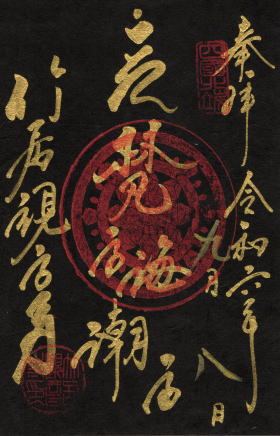 奉拝 令和六年
九月八日
梵音海潮音
竹居観音寺